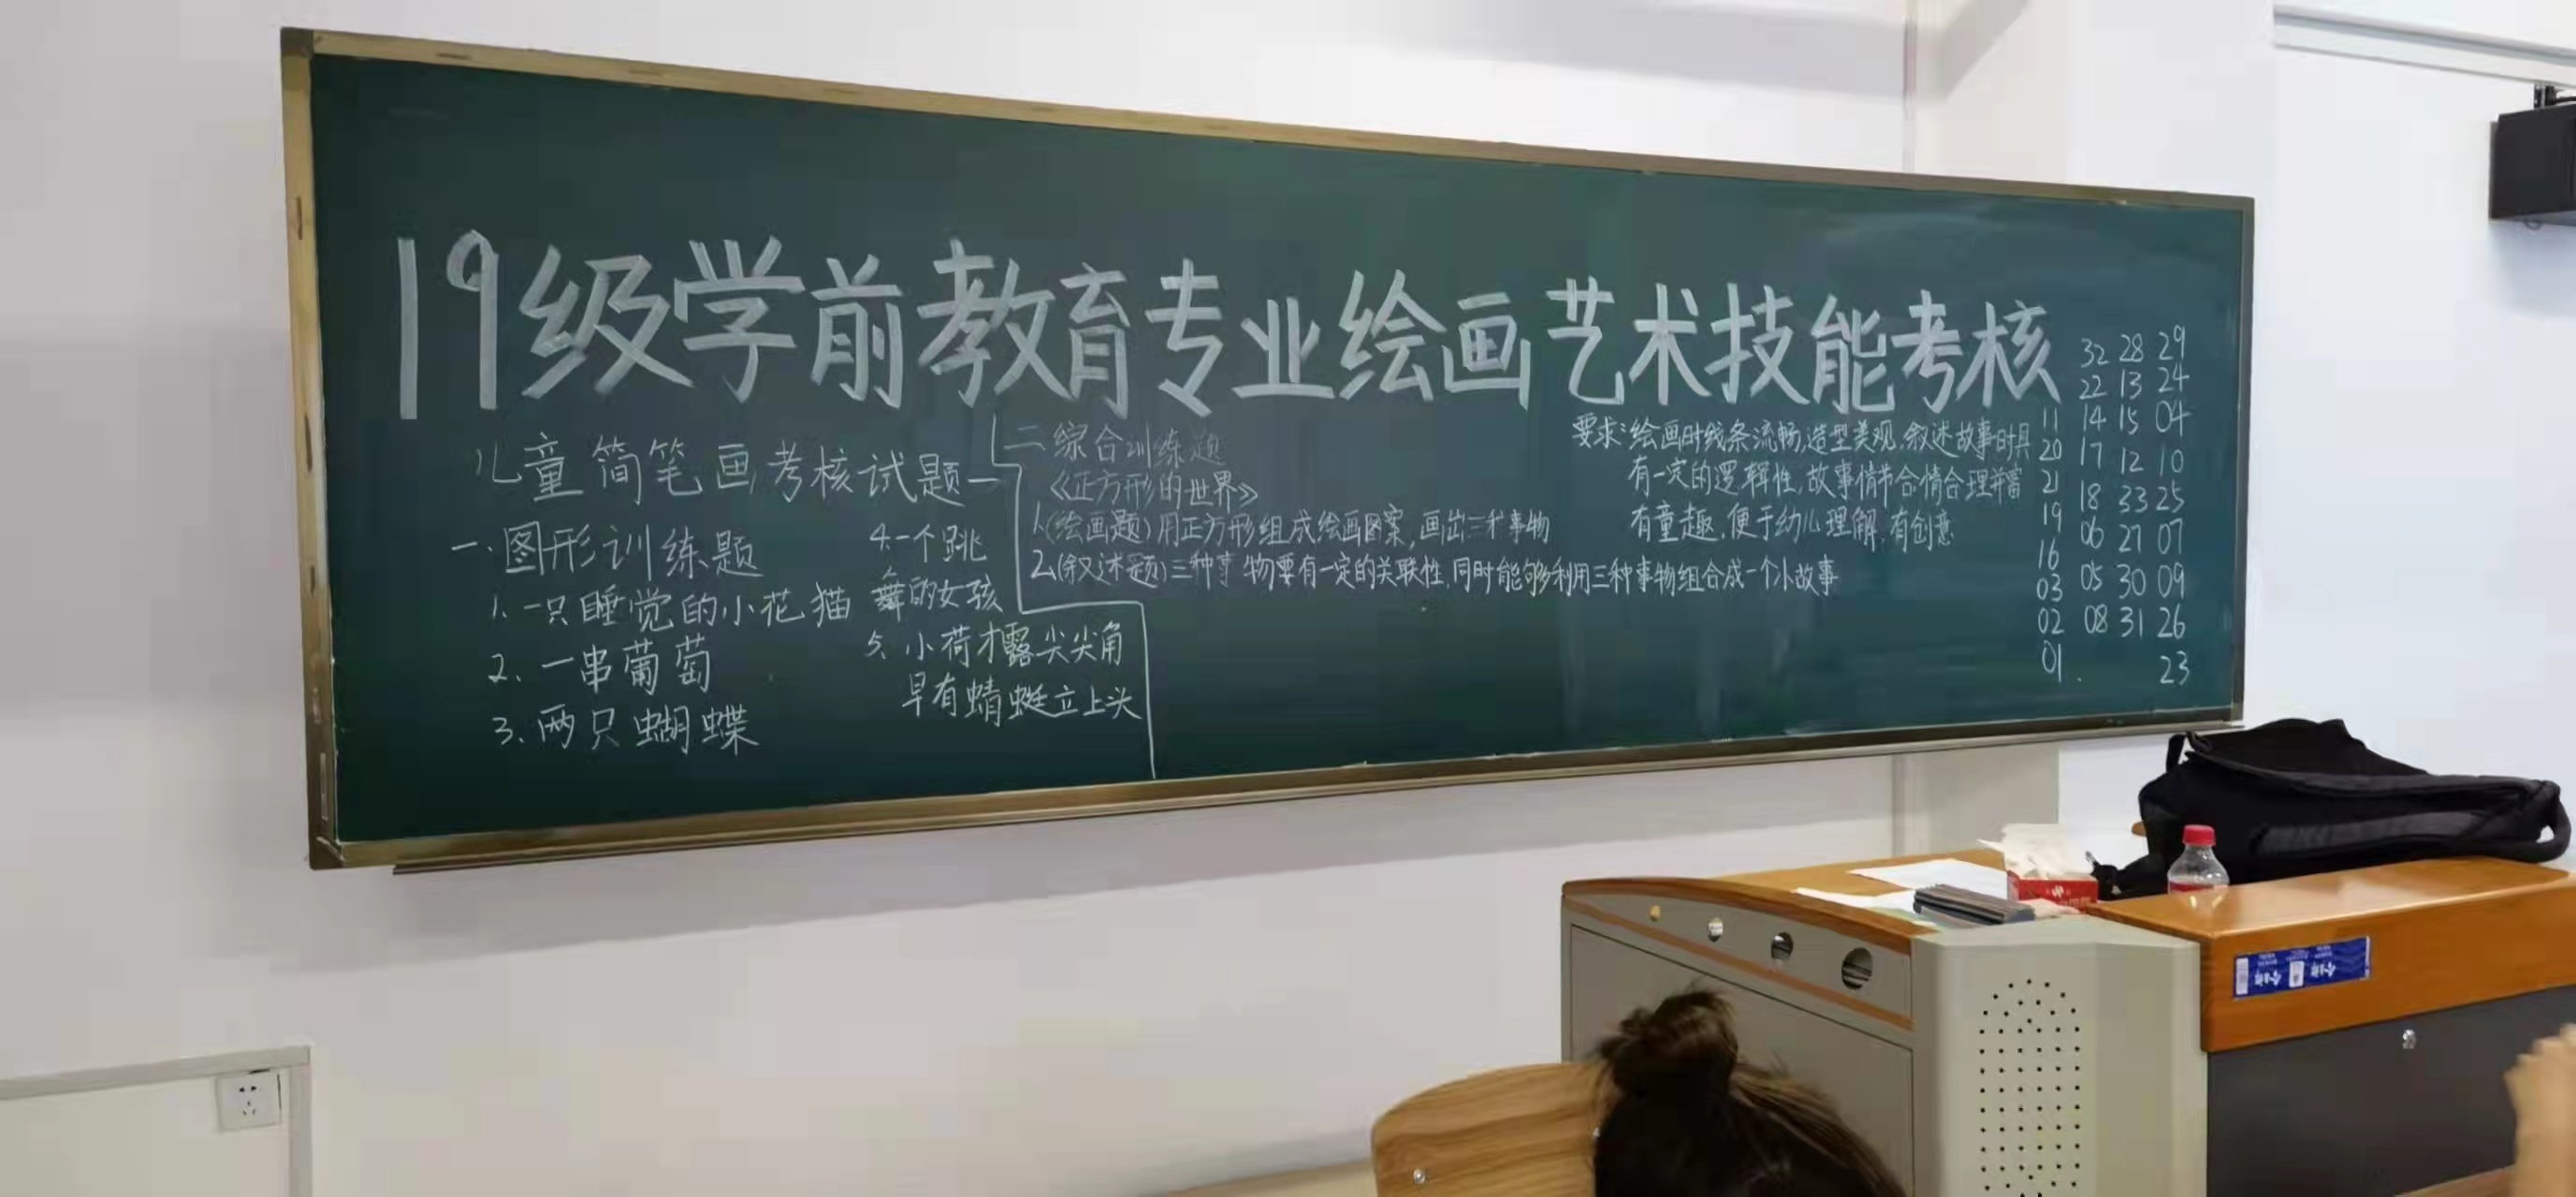 19级学前教育专业绘画艺术技能考核
儿童简笔画考核试题一
一、图形训练题
1、一只睡觉的小花猫
2、一串葡萄
3、两只蝴蝶
4、一个跳
舞的女孩
5、小荷才露尖尖角
早有蜻蜓立上头
二、综合训练题
《正方形的世界》
1、(绘画题)用正方形组成绘画图案,画出三种事物
2、(叙述题)三种事物要有一定的关联性,同时能够利用三种事物组合成一个小故事
要求:绘画时线条流畅,造型美观,叙述故事时具
有一定的逻辑性,故事情节合情合理并富
有童趣,便于幼儿理解,有创意
32 28 29
22 13 24
11 14 15 04
20 17 12 10
21 18 33 25
19 06 27 07
16 05 30 09
03 08 31 26
02 23
01